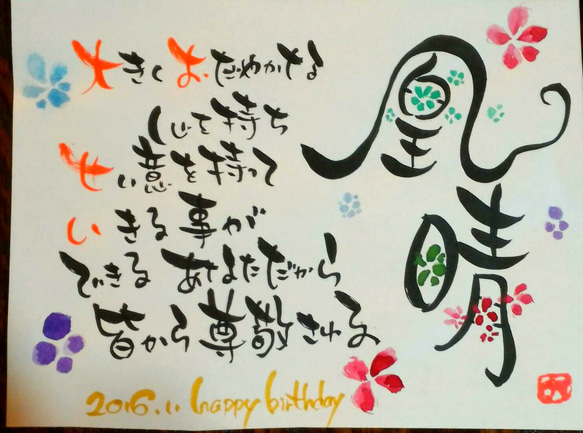 大きく おだやかなる
心を持ち
せい意を持って
いきる事が
できる あなただから
皆から尊敬される
2016.11 happy birthday
凰
晴